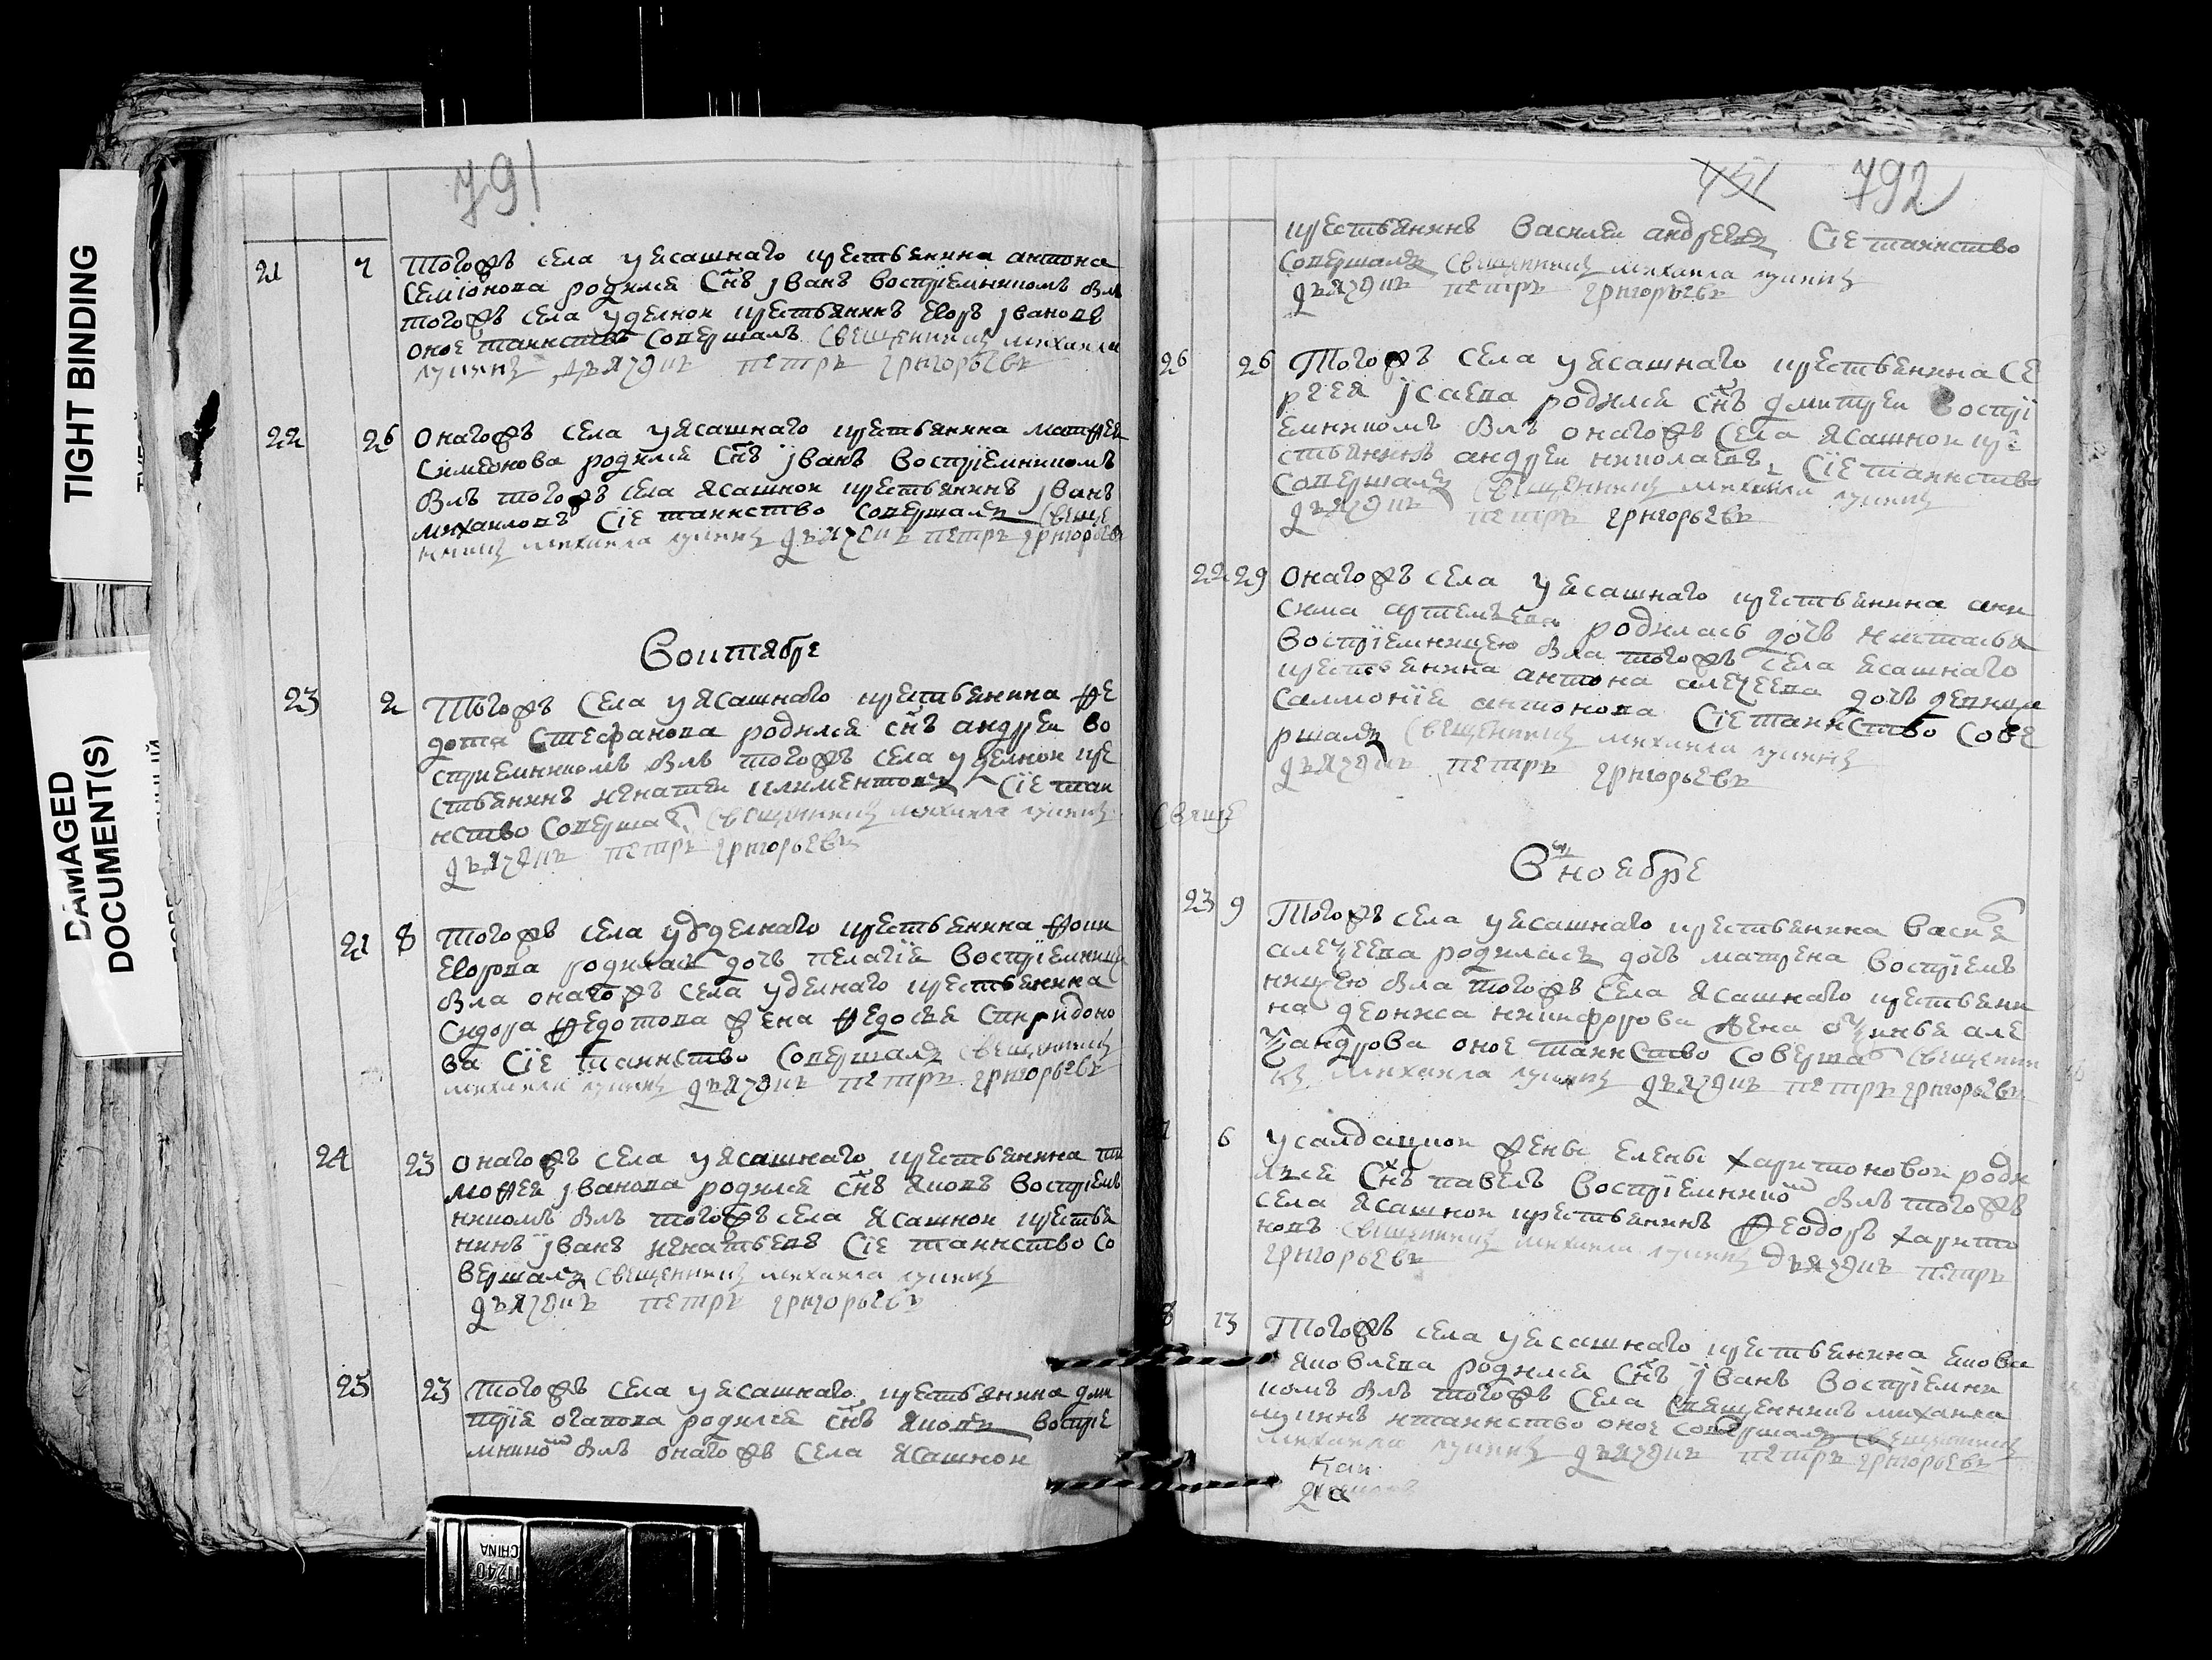 TIGHT BINDING
DAMAGED
DOCUMENT(S)
791
21 7 Тогожъ села у ясашнаго крестьянина антона
Семіонова родился Снъ јванъ воспріемникомъ былъ
тогожъ села уделнои крестьянинъ Егоръ јвановъ
оное таинство совершалъ Священникъ михаила
лукинъ дьячокъ петръ григорьевъ
22 26 Онагожъ села у ясашнаго крестьянина матфея
Симеонова родился Снъ јванъ воспріемникомъ
былъ тогожъ села ясашнои крестьянинъ јванъ
михаиловъ Сіе таинство совершалъ Свяще
нникъ михаила лукинъ дьячокъ петръ григорьевъ
Воктябре
23 2 Тогожъ Села у ясашнаго крестьянина Фе
дота Стефанова родился снъ андреи во
сприемникомъ былъ тогожъ села уделнои кре
стьянинъ игнатеи клементовъ Сіе таи
нство Совершалъ Священникъ михаила лукинъ
дьячокъ петръ григорьевъ
21 8 тогожъ села у уделнаго крестьянина Фоки
Егорова родилась дочь пелагія Воспріемницею
была онагожъ села уделнаго крестьянина
Сидора Федотова жена Федосья Спиридоно
ва Сіе таинство Совершалъ Священникъ
михаила лукинъ дьячокъ петръ григорьевъ
24 23 онагожъ села у ясашнаго крестьянина ти
мофея јванова родился снъ яковъ воспріем
никомъ былъ тогожъ села ясашнои крестья
нинъ јванъ игнатьевъ Сіе таинство со
вершалъ Священникъ михаила лукинъ
дьячокъ петръ григорьевъ
25 23 Тогожъ села у ясашнаго крестьянина дми
трія родился снъ яковъ воспріе
мникомъ былъ онагожъ села ясашнои
451 792
крестьянинъ василеи андреевъ Сіе таинство
Совершалъ Священникъ михаила лукинъ
дьячокъ петръ григорьевъ
26 26 Тогожъ села у ясашнаго крестьянина Се
ргея јсаева родился снъ дмитреи воспрі
емникомъ былъ онагожъ села ясашнои кре
стьянинъ андреи николаевъ Сіе таинство
Совершалъ Священникъ михаила лукинъ
дьячокъ петръ григорьевъ
22 29 Онагожъ села у ясашнаго крестьянина ани
сима артемьева родилась дочь настасья
Воспріемницею была тогожъ села ясашнаго
крестьянина антона алеѯеева дочь девица
Саламоніе антонова Сіе таинство Сове
ршалъ Священникъ михаила лукинъ
дьячокъ петръ григорьевъ
Свяще
В ноябре
23 9 Тогожъ села у ясашнаго крестьянина василя
алеѯеева родилась дочь матрена воспріем
ницею была тогожъ села ясашнаго крестьяни
на дениса никифорова жена алe
ѯандрова оное таинство совершалъ Священни
къ михаила лукинъ дьячокъ петръ григорьевъ
6 у салдацкои жены елены харитоновои роди
лся Снъ павелъ воспріемникомъ былъ тогожъ
села ясашнои крестьянинъ Феодоръ харито
новъ Священникъ михаила лукинъ дьячокъ петръ
григорьевъ
8 13 Тогожъ села у ясашнаго крестьянина якова
яковлева родился Снъ јванъ воспріемни
комъ былъ тогожъ села Священникъ михаила
лукинъ и таинство оное совершалъ Священникъ
михаила лукинъ дьячокъ петръ григорьевъ